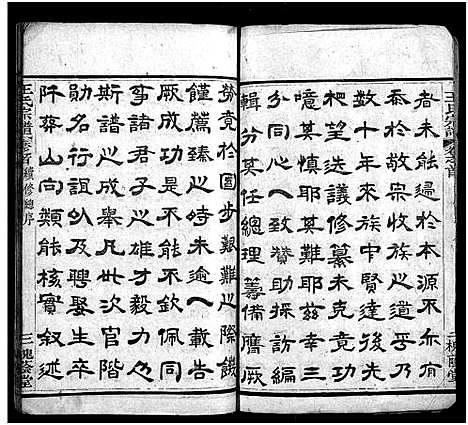 王氏宗譜
卷之首
者未能追遠於本源不亦有
忝於敬宗收族之道乎乃
數十年來族中賢達之
杞望迭議修纂未克竟功
噫其慎耶其難耶茲幸三
分同心一致贊助採訪編
輯分其任總理籌備膺厥
二
槐蔭堂
勞竟於國步艱難之際饑
饉薦臻之時未逾一載告
厥成功猗與休哉不欽佩同
事諸君子之雄才毅力也
斯譜之成舉凡班次官階
勛名行誼以及聘娶生卒
阡葬山向類能核實叙述
王氏宗譜
卷之首
續修總序
三
槐蔭堂